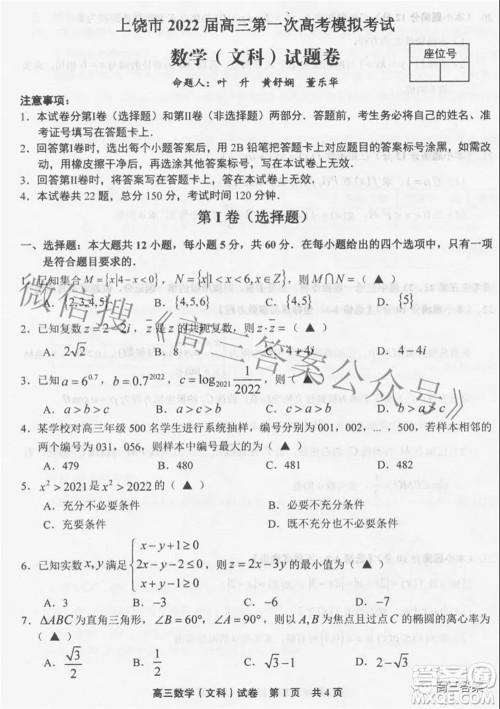 上饶市 2022 届高三第一次高考模拟考试
数学（文科）试题卷
座位号
命题人：叶 升 黄舒娴 董乐华
注意事项：
1. 本试卷分第Ⅰ卷（选择题）和第Ⅱ卷（非选择题）两部分. 答题前，考生务必将自己的姓名、准
考证号填写在答题卡上.
2. 回答第Ⅰ卷时，选出每个小题答案后，用 2B 铅笔把答题卡上对应题目的答案标号涂黑，如需改
动，用橡皮擦干净后，再选涂其他答案标号，写在本试卷上无效.
3. 回答第Ⅱ卷时，将答案写在答题卡上，答在本试卷上无效.
4. 本试卷共 22 题，总分 150 分，考试时间 120 分钟.
第Ⅰ卷（选择题）
一、选择题：本大题共 12 小题，每小题 5 分，共 60 分. 在所给出的四个选项中，只有一项
是符合题目要求的.
1. 已知集合 M={x|4-x<0}，N={
A. {2,3,4,5} B. {4,5,6} C. {4,5} D. {5}
2. 已知复数 z=2-2i，z̄ 是z的共轭复数，则 z·z̄=（ ▲ ）
A. 2√2 B. 8 C. 4+4i D. 4-4i
3. 已知 a=6^0.7，b=0.7^2022，c=log_2021 1/2022，则（ ▲ ）
A. a>b>c B. a>c>b C. c>a>b D. b>c>a
4. 某学校对高三年级 500 名学生进行系统抽样，编号分别为 001，002，…，500，若样本相邻的
两个编号为 031，056，则样本中编号最大的为（ ▲ ）
A. 479 B. 480 C. 481 D. 482
5. x²>2021 是 x²>2022 的（ ▲ ）
A. 充分不必要条件 B. 必要不充分条件
C. 充要条件 D. 既不充分也不必要条件
6. 已知实数 x,y 满足 {x-y+1≥0 2x-y-2≤0，则 z=2x-3y 的最小值为（ ▲ ） y≥0
A. 3 B. -2 C. -6 D. -8
7. △ABC 为直角三角形，∠B=60°，∠A=90°，则以 B,C 为焦点且过点 A 的椭圆的离心率为
（ ▲ ）
A. √3/2 B. 1/2 C. √3-1 D. √5-1
高三数学（文科）试卷 第 1 页 共 4 页
微信搜《高三答案公众号》
高三答案